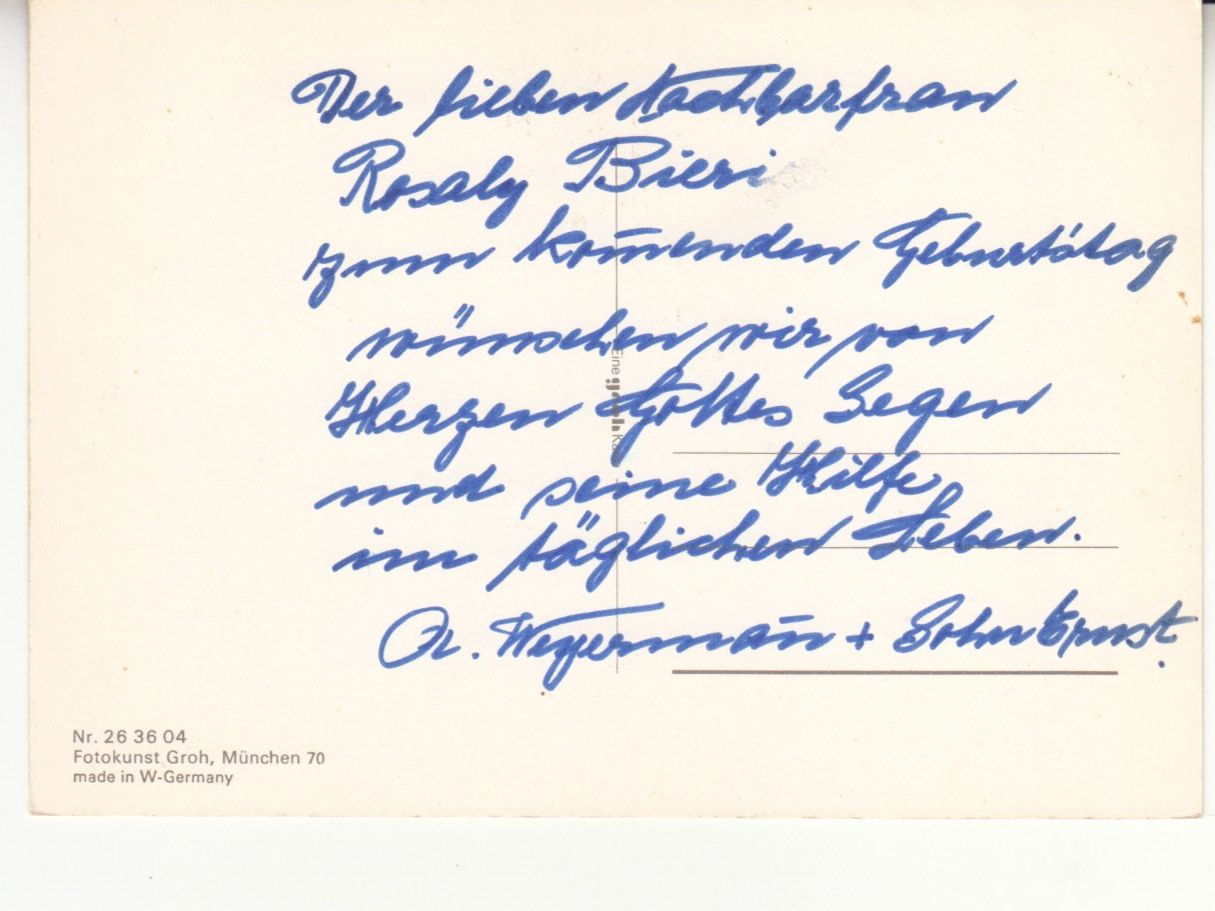 Der lieben Nachbarsfrau
Rosaly Bieri
zum kom̄enden Geburtstag
wünschen wir von
Herzen Gottes Segen
und seine Hilfe
im täglichen Leben.
Weyerman̄ + Sohn Ernst.
Eine groh Ka
Nr. 26 36 04
Fotokunst Groh, München 70
made in W-Germany